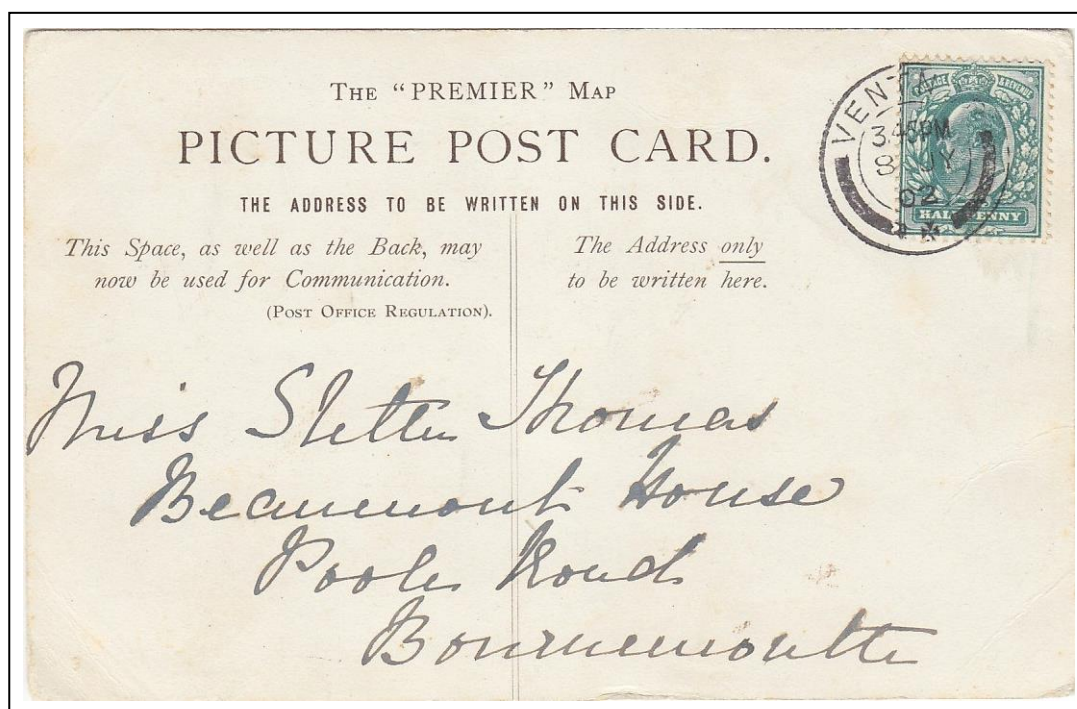 THE "PREMIER" MAP
PICTURE POST CARD.
THE ADDRESS TO BE WRITTEN ON THIS SIDE.
This Space, as well as the Back, may
now be used for Communication.
(POST OFFICE REGULATION).
The Address only
to be written here.
VENTN
3.45PM
8 JY
02
POSTAGE & REVENUE
HALFPENNY
Miss Thomas
Beaumont House
Poole Road
Bournemouth